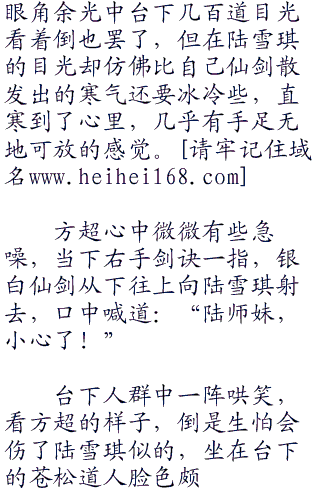 眼角余光中台下几百道目光
看着倒也罢了，但在陆雪琪
的目光却仿佛比自己仙剑散
发出的寒气还要冰冷些，直
寒到了心里，几乎有手足无
地可放的感觉。[请牢记住域
名www.heihei168.com]
方超心中微微有些急
噪，当下右手剑诀一指，银
白仙剑从下往上向陆雪琪射
去，口中喊道：“陆师妹，
小心了！”
台下人群中一阵哄笑，
看方超的样子，倒是生怕会
伤了陆雪琪似的，坐在台下
的苍松道人脸色颇